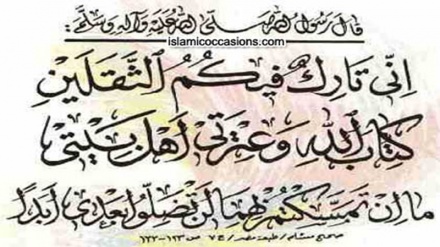 قال رسول الله صلى الله عليه وآله وسلم:
islamicoccasions.com
إنى تارك فيكم الثقلين
كتاب الله وعترتى أهل بيتى
ما إن تمسكتم بهما لن تضلوا بعدى أبدا